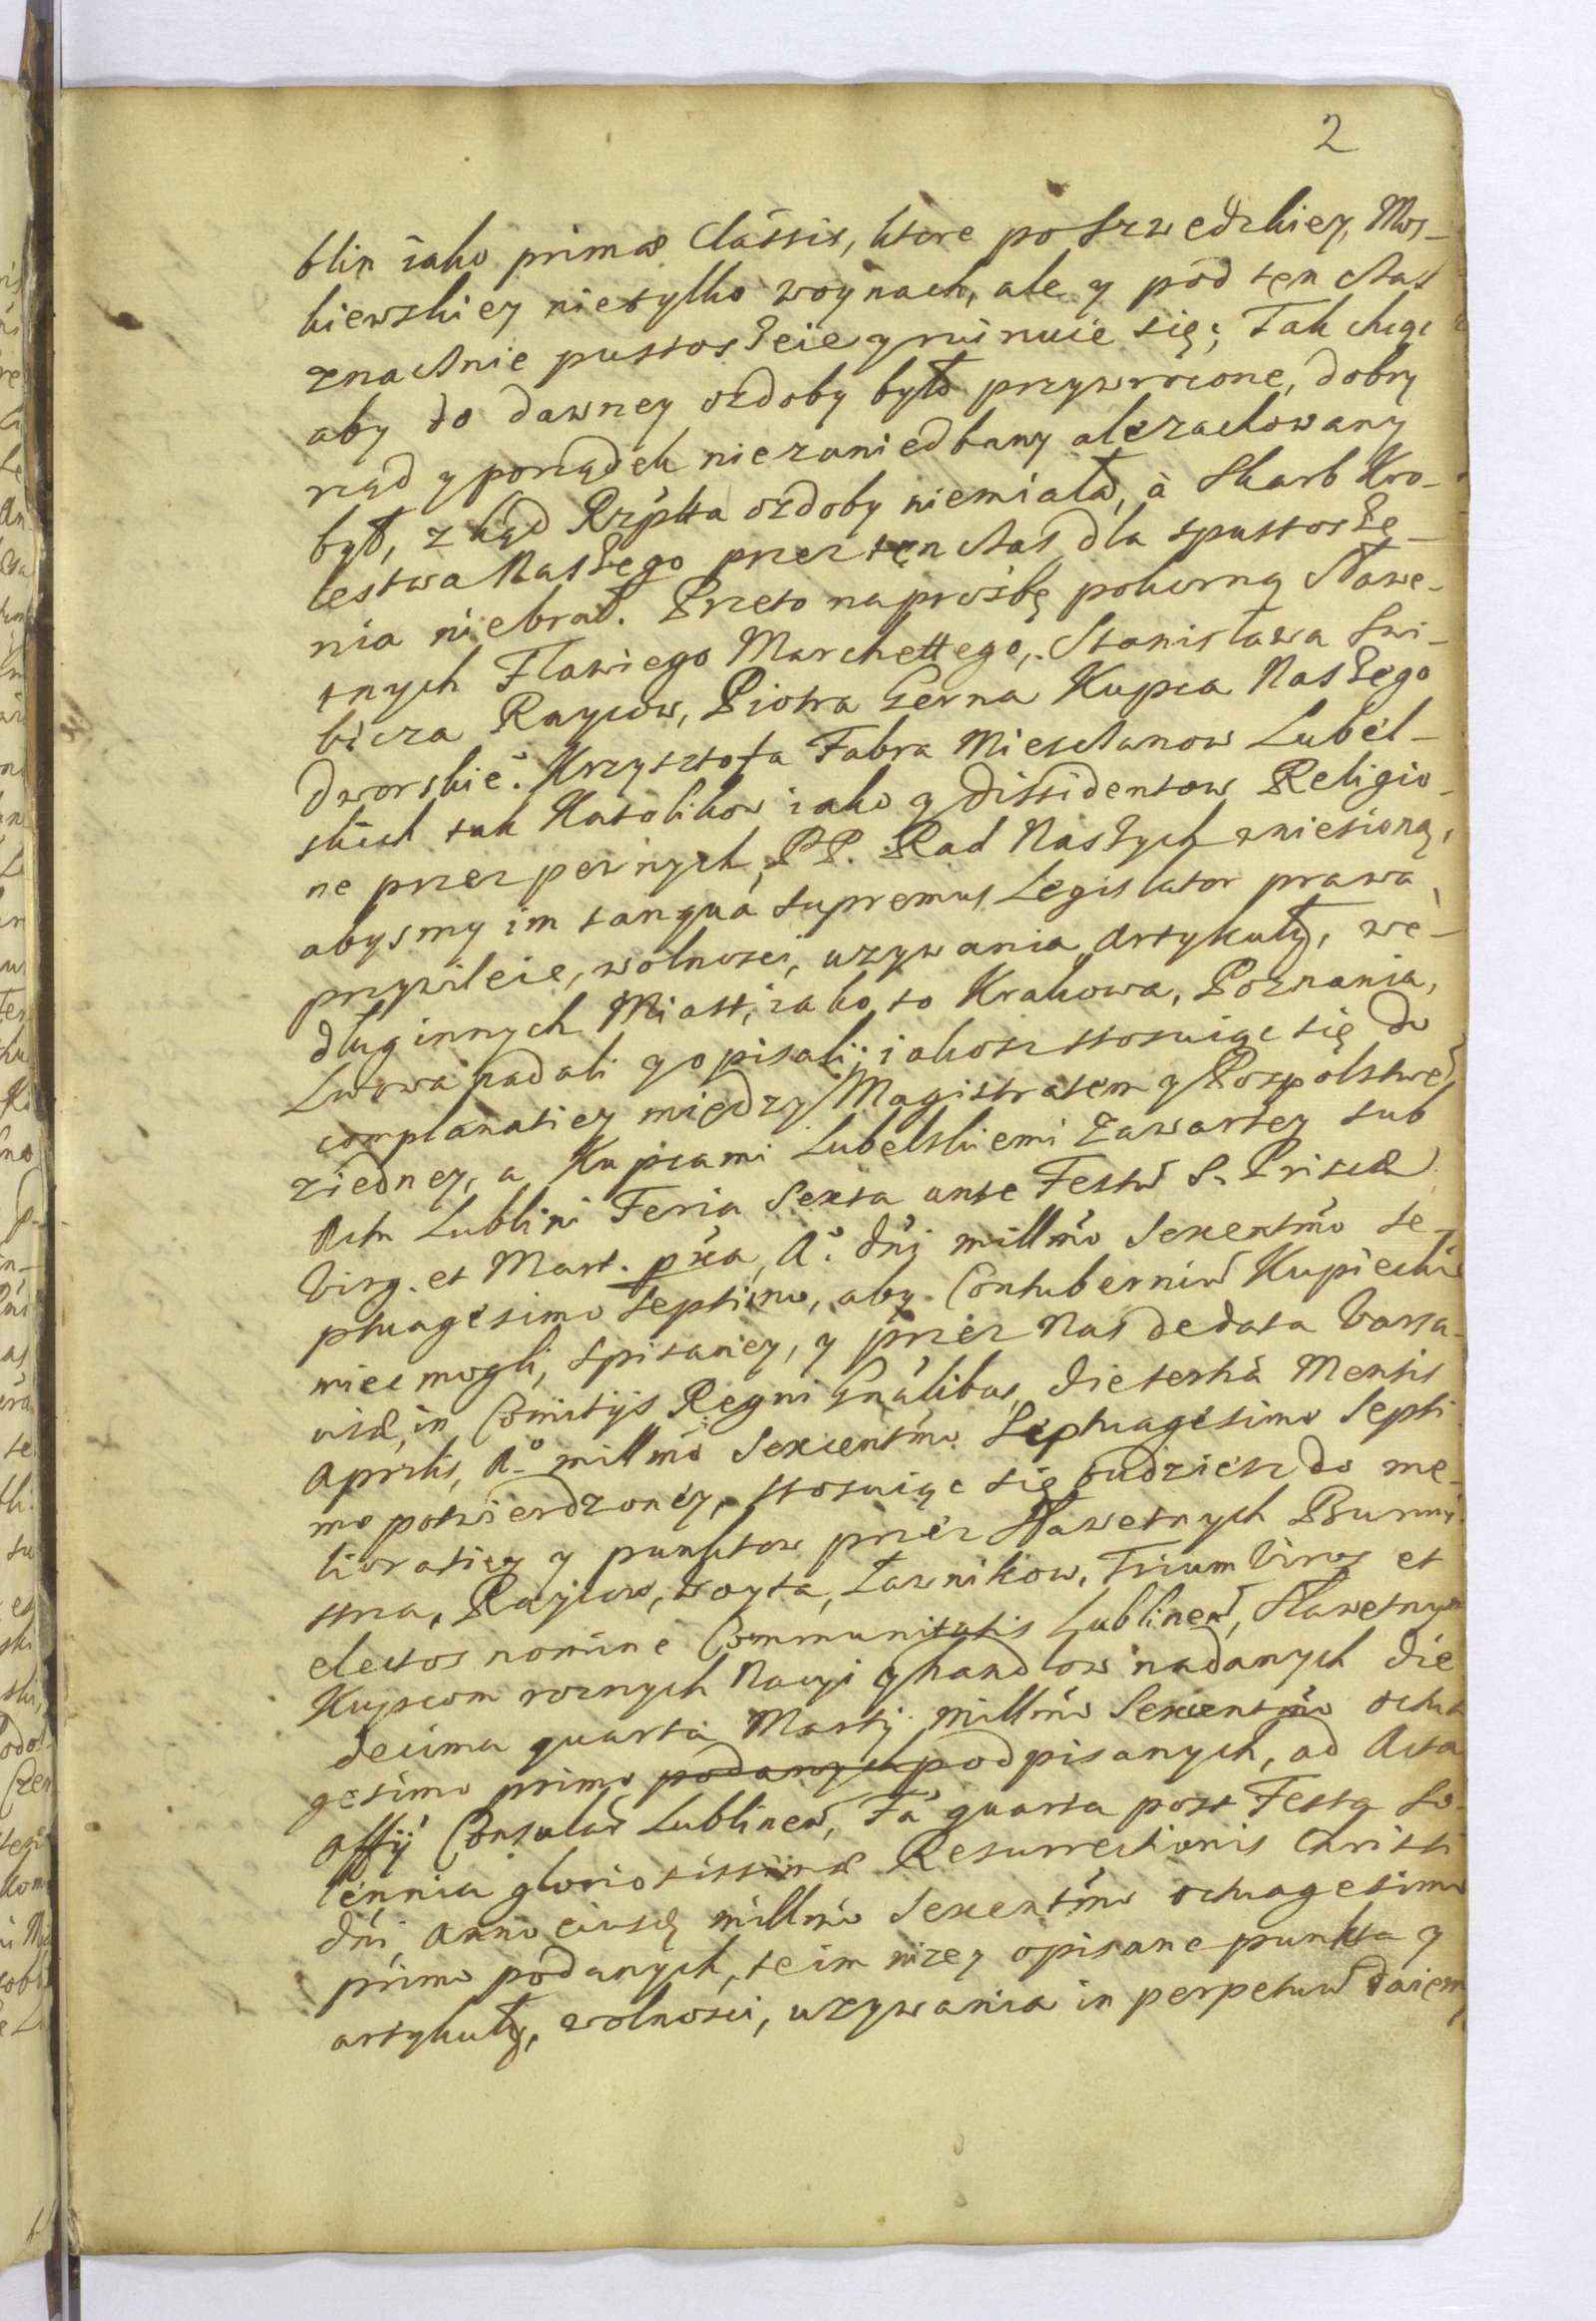 2
blin iako primæ Classis, ktore po Szwedzkiey, Mos-
kiewskiey nietylko woynach, ale y pod ten czas
znacznie pustoszeie y ruinuie się; Tak chcąc
aby do dawney ozdoby było przywrocone, dobry
rząd y porządek niezaniedbany ale zachowany
był, zkąd Rzpłta ozdoby niemiała, à Skarb Kro-
lestwa Naszego przez ten czas dla spustosze-
nia niebrał. Przeto na prośbę pokorną sławe-
tnych Flawiego Marchettego, Stanisława Swi-
bicza Raycow, Piotra Gerna Kupca Naszego
dworskie°. Krzysztofa Fabra Miesczanow Lubel-
skich tak Katolikow iako y dissidentow Religio-
ne przez pewnych PP. Rad Naszych wniesioną,
abysmy im tanquā supremus Legislator prawa,
przywileie, wolnosci, uzywania, artykuły, we-
dług innych Miast, iako to Krakowa, Poznania,
Lwowa nadali y opisali; iakosz stosuiąc się do
complanatiey między Magistratem y Pospolstwē
ziedney, a Kupcami Lubelskiemi zawartey sub
Actu Lublini Feria Sexta ante Festū S. Priscæ
Virg. et Mart. pxa, A° dni millmo Sexcentmo se-
ptuagesimo septimo, aby Contuberniū Kupieckie
miec mogli, spisaney, y przez Nas de data Varsa-
viæ, in Comitijs Regni Gnalibus, die tertia Mensis
Aprilis, A° millmo Sexcentmo Septuagesimo Septi
mo potwierdzoney, stosuiąc się tudziesz do me-
lioratiey y punktow przez sławetnych Burmi-
stra, Raycow, Woyta, Ławnikow, Triumviros et
electos nomine Communitatis Lublinen, Sławetnym
Kupcom roznych Nacyi y handlow nadanych die
decima quarta Martij millmo Sexcentmo octua
gesimo primo podanych podpisanych, ad Acta
Offij Consular Lublinen, Fa quarta post Festa So-
lennia gloriosissimæ Resurrectionis Christi
dni, Anno eiusd millmo Sexcentmo octuagesimo
primo podanych, te im nizey opisane punkta y
artykuły, wolnosci, uzywania in perpetuū daiemy